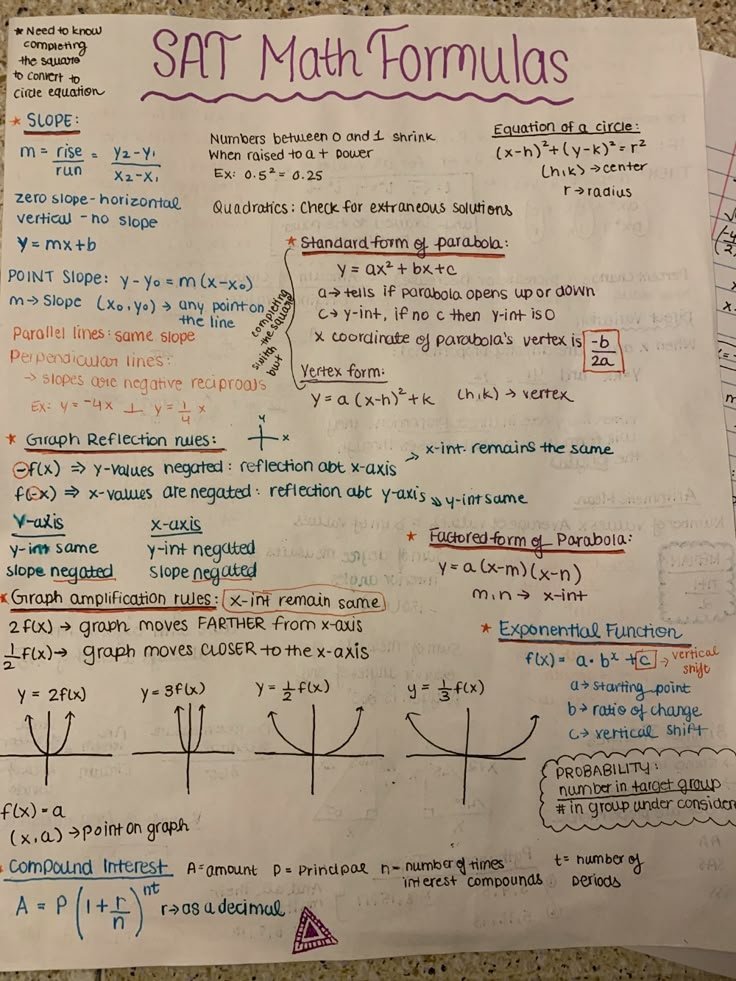 * Need to know
completing
the square
to convert to
circle equation
SAT Math Formulas
* SLOPE:
m = rise/run = y₂-y₁/x₂-x₁
zero slope - horizontal
vertical - no slope
y = mx+b
Numbers between 0 and 1 shrink
When raised to a + power
Ex: 0.5² = 0.25
Quadratics: Check for extraneous solutions
Equation of a circle:
(x-h)²+(y-k)²=r²
(h,k)→center
r→radius
POINT SLOPE: y-y₀=m(x-x₀)
m→ Slope (x₀,y₀)→ any point on
the line
Parallel lines: same slope
Perpendicular lines:
→ slopes are negative reciprocals
Ex: y = -4x ⊥ y = 1/4 x
* Standard form of parabola:
y = ax²+bx+c
a→ tells if parabola opens up or down
c→ y-int, if no c then y-int is 0
x coordinate of parabola's vertex is -b/2a
completing
the square
switch
but
Vertex form:
y = a(x-h)²+k (h,k)→ vertex
* Graph Reflection rules:
y
x
-f(x) ⇒ y-values negated: reflection abt x-axis → x-int. remains the same
f(-x) ⇒ x-values are negated: reflection abt y-axis ⇒ y-int same
y-axis
y-int same
slope negated
x-axis
y-int negated
slope negated
* Factored form of Parabola:
y = a(x-m)(x-n)
m,n→ x-int
* Graph amplification rules: x-int remain same
2f(x) → graph moves FARTHER from x-axis
1/2 f(x)→ graph moves CLOSER to the x-axis
* Exponential Function
f(x) = a·bˣ +c → vertical
shift
a→ starting point
b→ ratio of change
c→ vertical shift
y = 2f(x)
y = 3f(x)
y = 1/2 f(x)
y = 1/3 f(x)
PROBABILITY:
number in target group
# in group under consider
f(x) = a
(x,a) → point on graph
Compound Interest A=amount P=Principal n=number of times
interest compounds
t= number of
periods
A = P(1+r/n)ⁿᵗ r→as a decimal